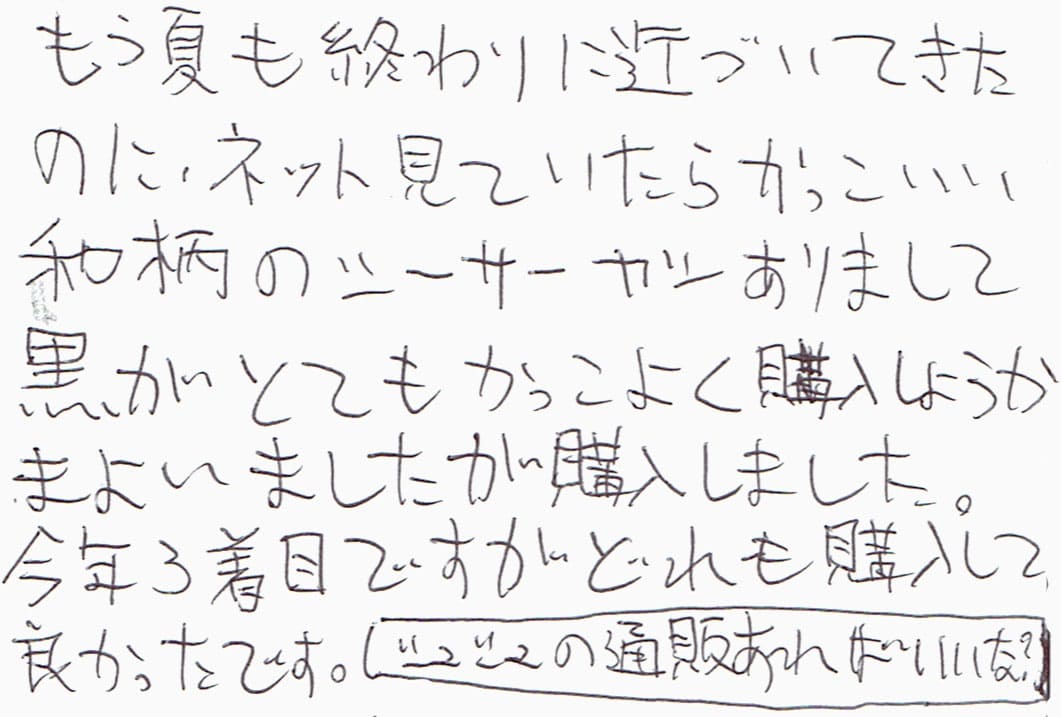 もう夏も終わりに近づいてきた
のに、ネット見ていたらかっこいい
和柄のツーサーがありまして
黒がとてもかっこよく購入しようか
まよいましたが購入しました。
今年3着目ですがどれも購入して
良かったです。の通販あればいいな?